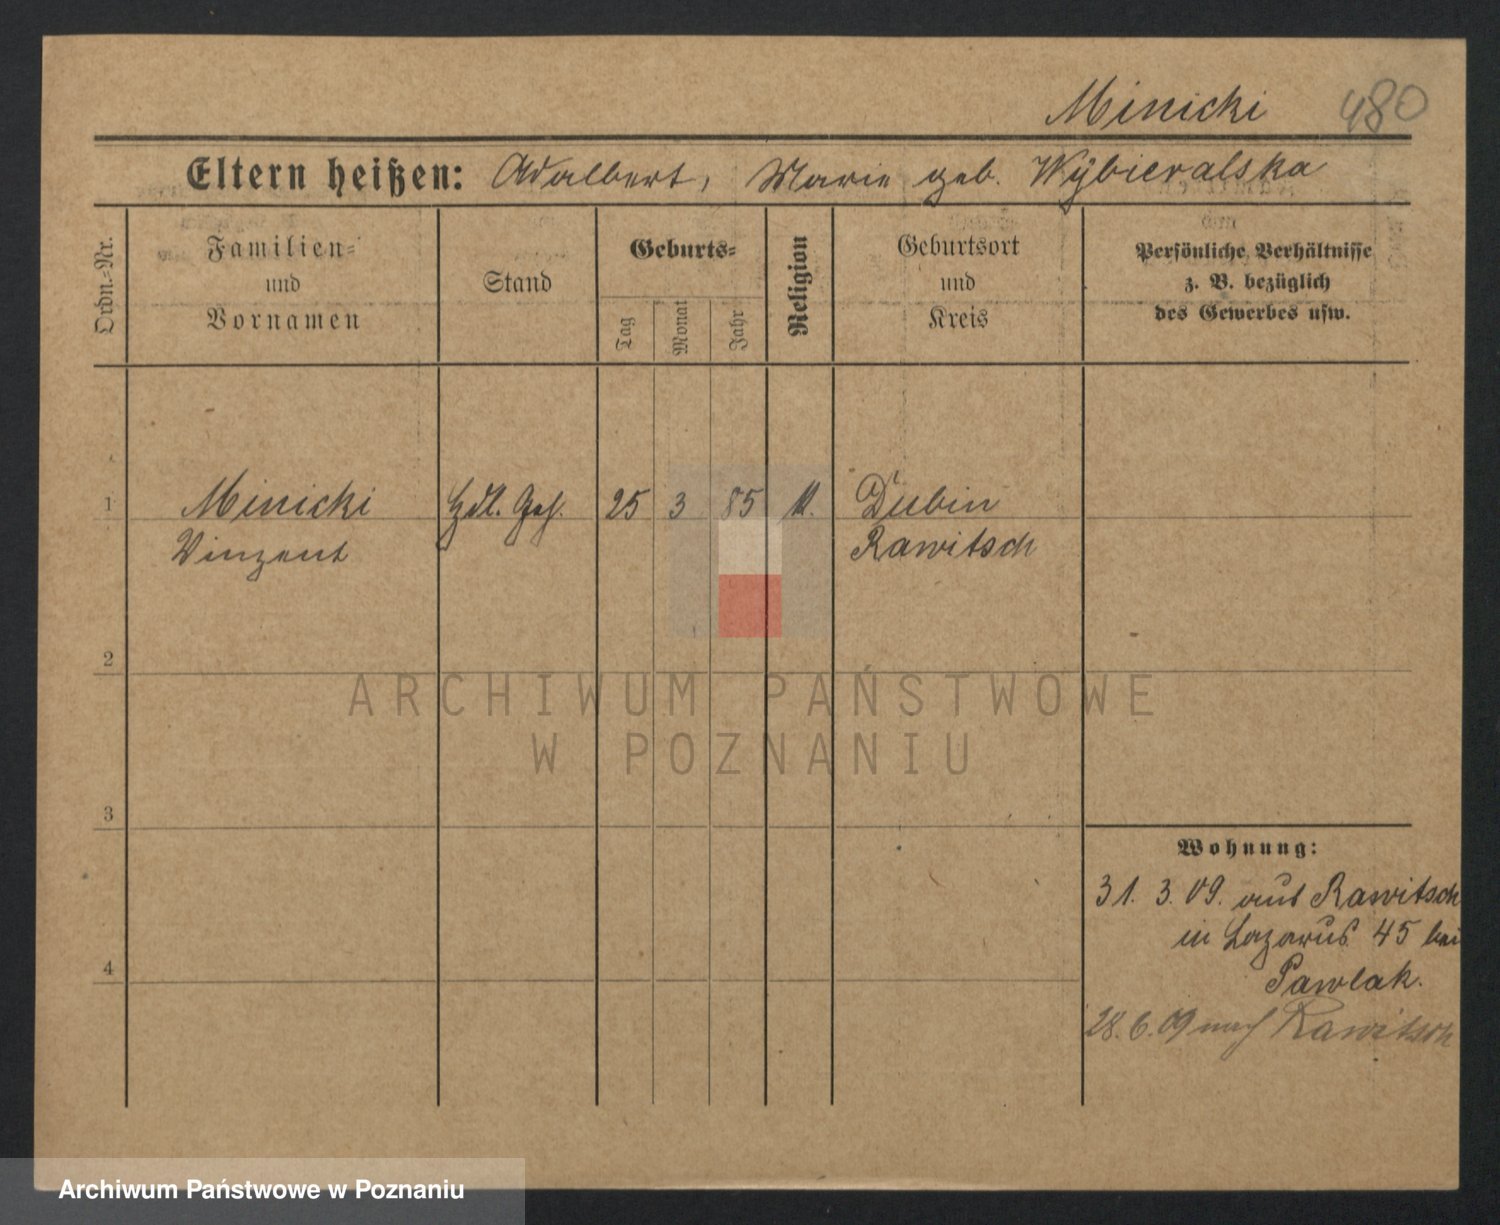 Minicki 480
Eltern heißen: Adalbert, Marie geb. Wÿbieralska
Ordn.-Nr.
Familien=
und
Vornamen
Stand
Geburts=
Tag
Monat
Jahr
Religion
Geburtsort
und
Kreis
Persönliche Verhältnisse
z. B. bezüglich
des Gewerbes usw.
1 Minicki Hdl. Geh. 25 3 85 k. Dubin
Vinzent Rawitsch
2
ARCHIWUM PAŃSTWOWE
W POZNANIU
3
Wohnung:
31. 3. 09. aus Rawitsch
in Lazarus 45 bei
4
Pawlak.
28. 6. 09 nach Rawitsch
Archiwum Państwowe w Poznaniu